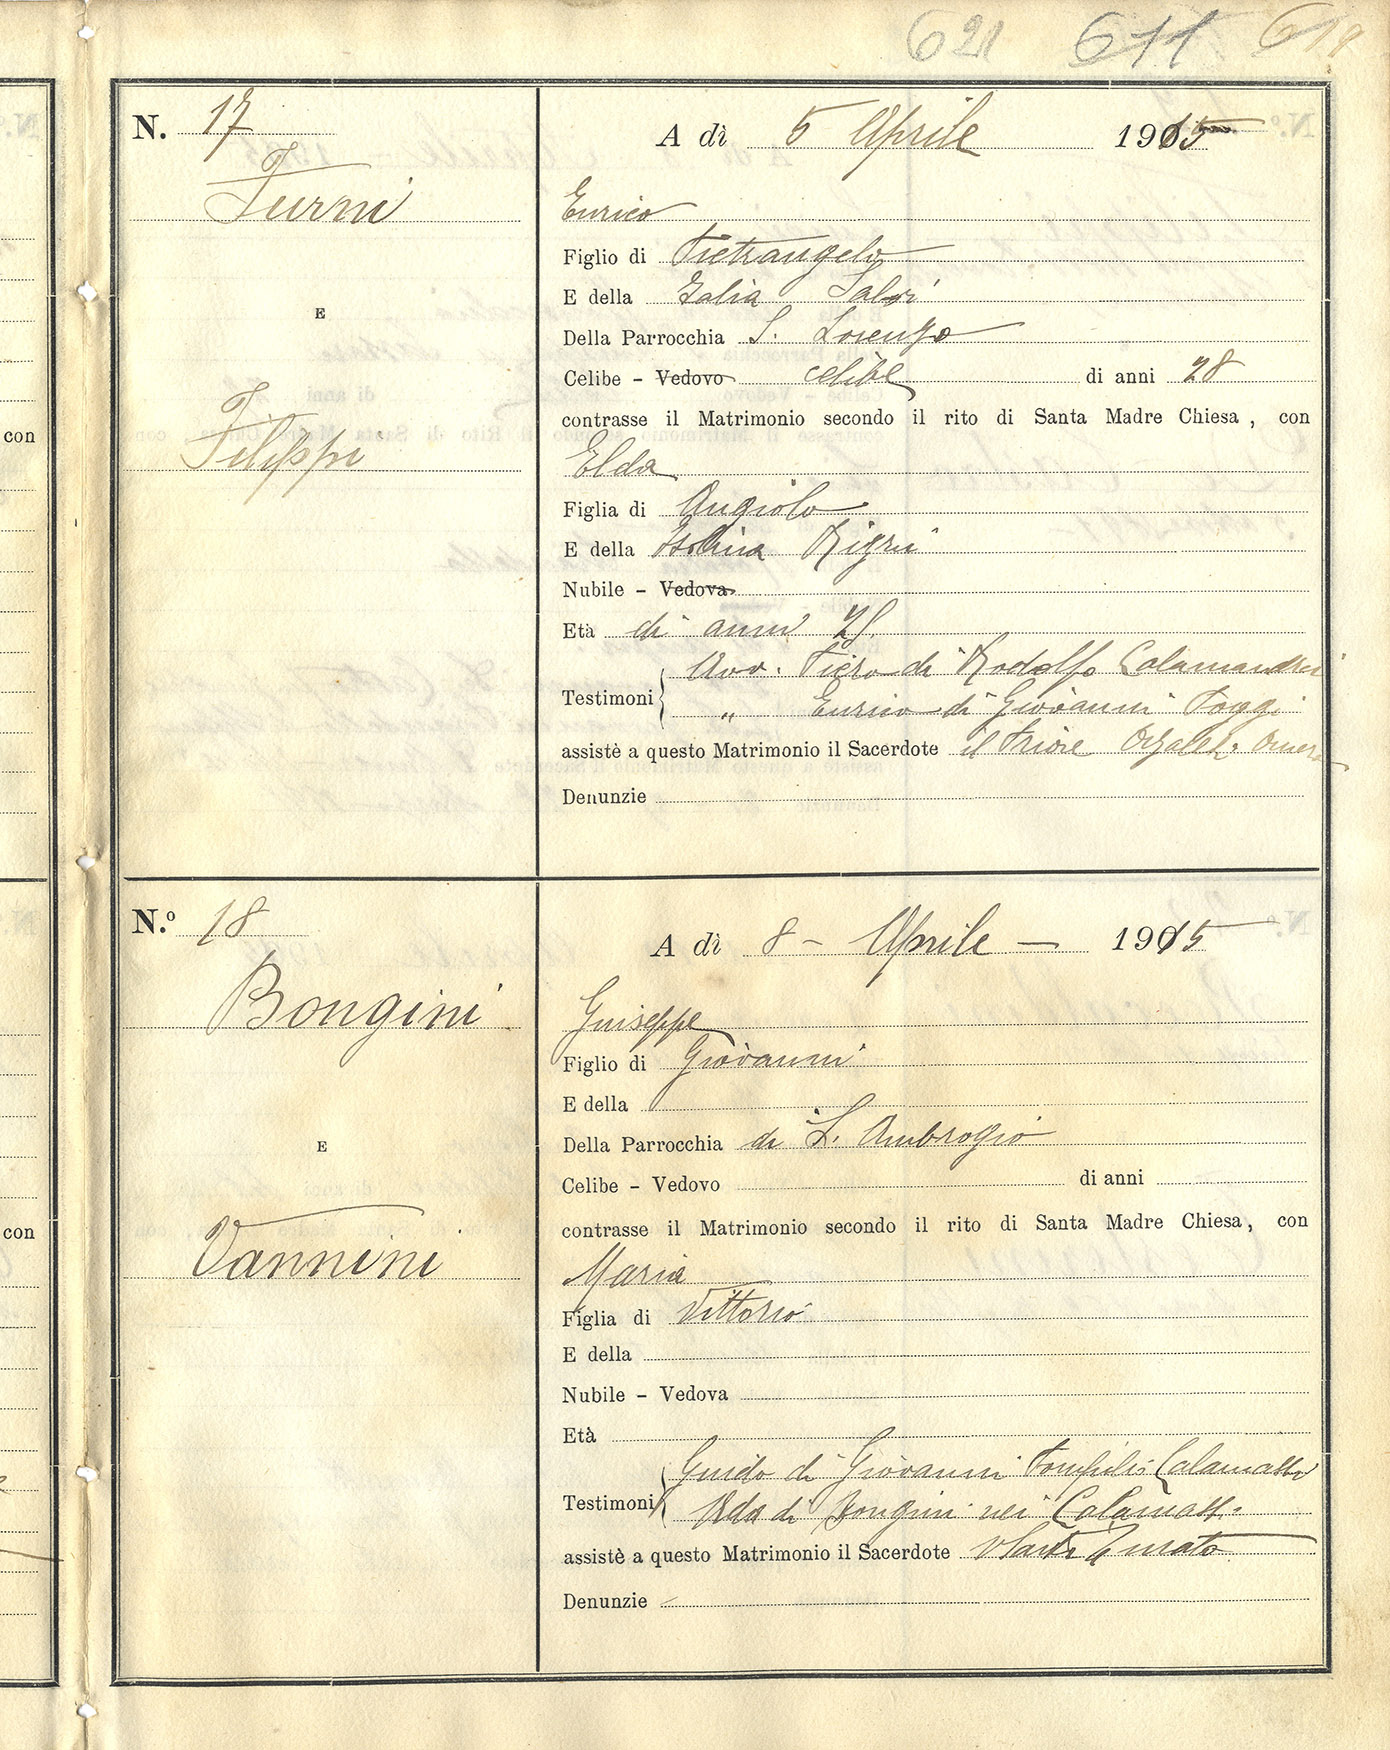 621 611 619
N. 17
A dì 5 Aprile 1915
Furni
Enrico
Figlio di Pietrangelo
E della Zalia Salvi
E
Della Parrocchia S. Lorenzo
Celibe - Vedovo celibe di anni 28
contrasse il Matrimonio secondo il rito di Santa Madre Chiesa, con
con
Filippi
Elda
Figlia di Angiolo
E della Righi
Nubile - Vedova
Età di anni
Testimoni Avv. Piero di Rodolfo Calamandrei
" Enrico di Giovanni Poggi
assistè a questo Matrimonio il Sacerdote il Priore
Denunzie
N.º 18
A dì 8 - Aprile - 1915
Bongini
Giuseppe
Figlio di Giovanni
E della
E
Della Parrocchia di S. Ambrogio
Celibe - Vedovo di anni
contrasse il Matrimonio secondo il rito di Santa Madre Chiesa, con
con
Vannini
Maria
Figlia di Vittorio
E della
Nubile - Vedova
Età
Testimoni Guido di Giovanni Pompilio
Alda di Bongini nei
assistè a questo Matrimonio il Sacerdote Curato
Denunzie